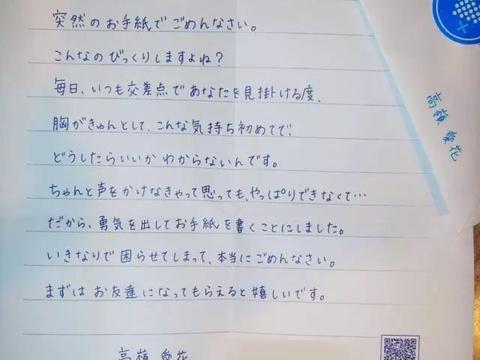 突然のお手紙でごめんなさい。
こんなのびっくりしますよね?
毎日、いつも交差点であなたを見掛ける度、
胸がきゅんとして、こんな気持ち初めてで、
どうしたらいいかわからないんです。
ちゃんと声をかけなきゃって思っても、やっぱりできなくて…
だから、勇気を出してお手紙を書くことにしました。
いきなりで困らせてしまって、本当にごめんなさい。
まずはお友達になってもらえると嬉しいです。
高嶺 愛花
高嶺 愛花